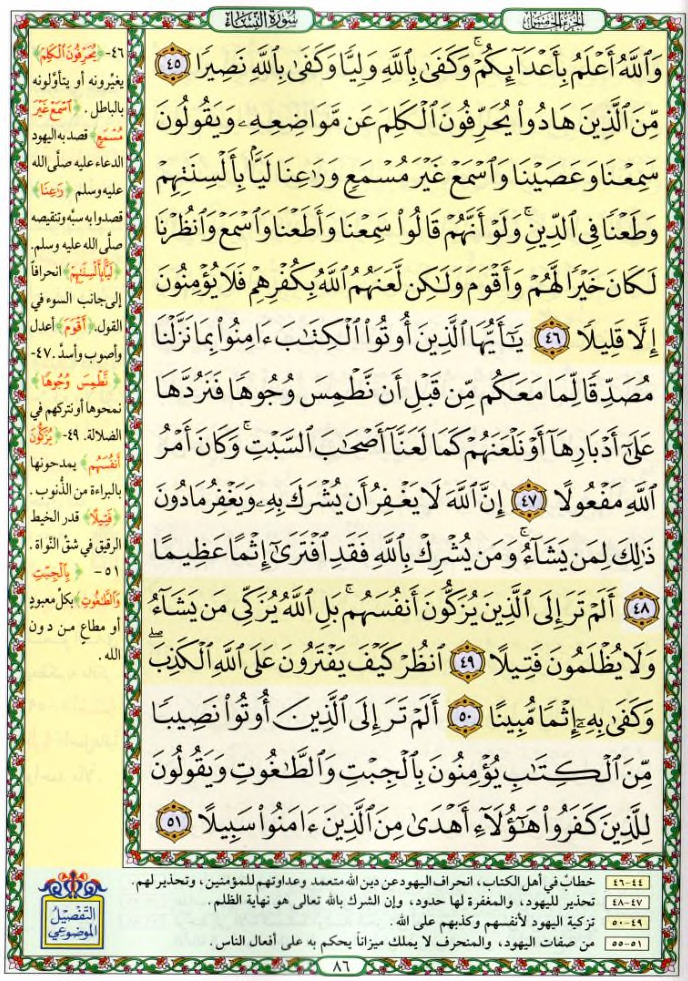 الجزء الخامس
سورة النساء
وَٱللَّهُ أَعْلَمُ بِأَعْدَآئِكُمْ ۚ وَكَفَىٰ بِٱللَّهِ وَلِيًّا وَكَفَىٰ بِٱللَّهِ نَصِيرًا ٤٥
مِّنَ ٱلَّذِينَ هَادُوا۟ يُحَرِّفُونَ ٱلْكَلِمَ عَن مَّوَاضِعِهِۦ وَيَقُولُونَ
سَمِعْنَا وَعَصَيْنَا وَٱسْمَعْ غَيْرَ مُسْمَعٍ وَرَٰعِنَا لَيًّۢا بِأَلْسِنَتِهِمْ
وَطَعْنًا فِى ٱلدِّينِ ۚ وَلَوْ أَنَّهُمْ قَالُوا۟ سَمِعْنَا وَأَطَعْنَا وَٱسْمَعْ وَٱنظُرْنَا
لَكَانَ خَيْرًا لَّهُمْ وَأَقْوَمَ وَلَٰكِن لَّعَنَهُمُ ٱللَّهُ بِكُفْرِهِمْ فَلَا يُؤْمِنُونَ
إِلَّا قَلِيلًا ٤٦ يَٰٓأَيُّهَا ٱلَّذِينَ أُوتُوا۟ ٱلْكِتَٰبَ ءَامِنُوا۟ بِمَا نَزَّلْنَا
مُصَدِّقًا لِّمَا مَعَكُم مِّن قَبْلِ أَن نَّطْمِسَ وُجُوهًا فَنَرُدَّهَا
عَلَىٰٓ أَدْبَارِهَآ أَوْ نَلْعَنَهُمْ كَمَا لَعَنَّآ أَصْحَٰبَ ٱلسَّبْتِ ۚ وَكَانَ أَمْرُ
ٱللَّهِ مَفْعُولًا ٤٧ إِنَّ ٱللَّهَ لَا يَغْفِرُ أَن يُشْرَكَ بِهِۦ وَيَغْفِرُ مَا دُونَ
ذَٰلِكَ لِمَن يَشَآءُ ۚ وَمَن يُشْرِكْ بِٱللَّهِ فَقَدِ ٱفْتَرَىٰٓ إِثْمًا عَظِيمًا
٤٨ أَلَمْ تَرَ إِلَى ٱلَّذِينَ يُزَكُّونَ أَنفُسَهُم ۚ بَلِ ٱللَّهُ يُزَكِّى مَن يَشَآءُ
وَلَا يُظْلَمُونَ فَتِيلًا ٤٩ ٱنظُرْ كَيْفَ يَفْتَرُونَ عَلَى ٱللَّهِ ٱلْكَذِبَ ۖ
وَكَفَىٰ بِهِۦٓ إِثْمًا مُّبِينًا ٥٠ أَلَمْ تَرَ إِلَى ٱلَّذِينَ أُوتُوا۟ نَصِيبًا
مِّنَ ٱلْكِتَٰبِ يُؤْمِنُونَ بِٱلْجِبْتِ وَٱلطَّٰغُوتِ وَيَقُولُونَ
لِلَّذِينَ كَفَرُوا۟ هَٰٓؤُلَآءِ أَهْدَىٰ مِنَ ٱلَّذِينَ ءَامَنُوا۟ سَبِيلًا ٥١
٤٦- ﴿يُحَرِّفُونَ ٱلْكَلِمَ﴾
يغيّرونه أو يتأوّلونه
بالباطل . ﴿ٱسْمَعْ غَيْرَ
مُسْمَعٍ﴾ قصد به اليهود
الدعاء عليه صلّى الله
عليه وسلم ﴿رَٰعِنَا﴾
قصدوا به سبّه وتنقيصه
صلّى الله عليه وسلم.
﴿لَيًّۢا بِأَلْسِنَتِهِمْ﴾ انحرافاً
إلى جانب السوء في
القول. ﴿أَقْوَمَ﴾ أعدل
وأصوب وأسدّ . ٤٧-
﴿نَّطْمِسَ وُجُوهًا﴾
نمحوها أو نتركهم في
الضلالة. ٤٩- ﴿يُزَكُّونَ
أَنفُسَهُم﴾ يمدحونها
بالبراءة من الذُّنوب .
﴿فَتِيلًا﴾ قدر الخيط
الرقيق في شقّ النَّواة .
٥١ - ﴿بِٱلْجِبْتِ
وَٱلطَّٰغُوتِ﴾ بكلّ معبودٍ
أو مطاعٍ من دون
الله .
التفصيل
الموضوعي
٤٤-٤٦ خطاب في أهل الكتاب، انحراف اليهود عن دين الله متعمد وعداوتهم للمؤمنين، وتحذير لهم.
٤٧-٤٨ تحذير لليهود، والمغفرة لها حدود، وإن الشرك بالله تعالى هو نهاية الظلم.
٤٩-٥٠ تزكية اليهود لأنفسهم وكذبهم على الله .
٥١-٥٥ من صفات اليهود، والمنحرف لا يملك ميزاناً يحكم به على أفعال الناس .
٨٦